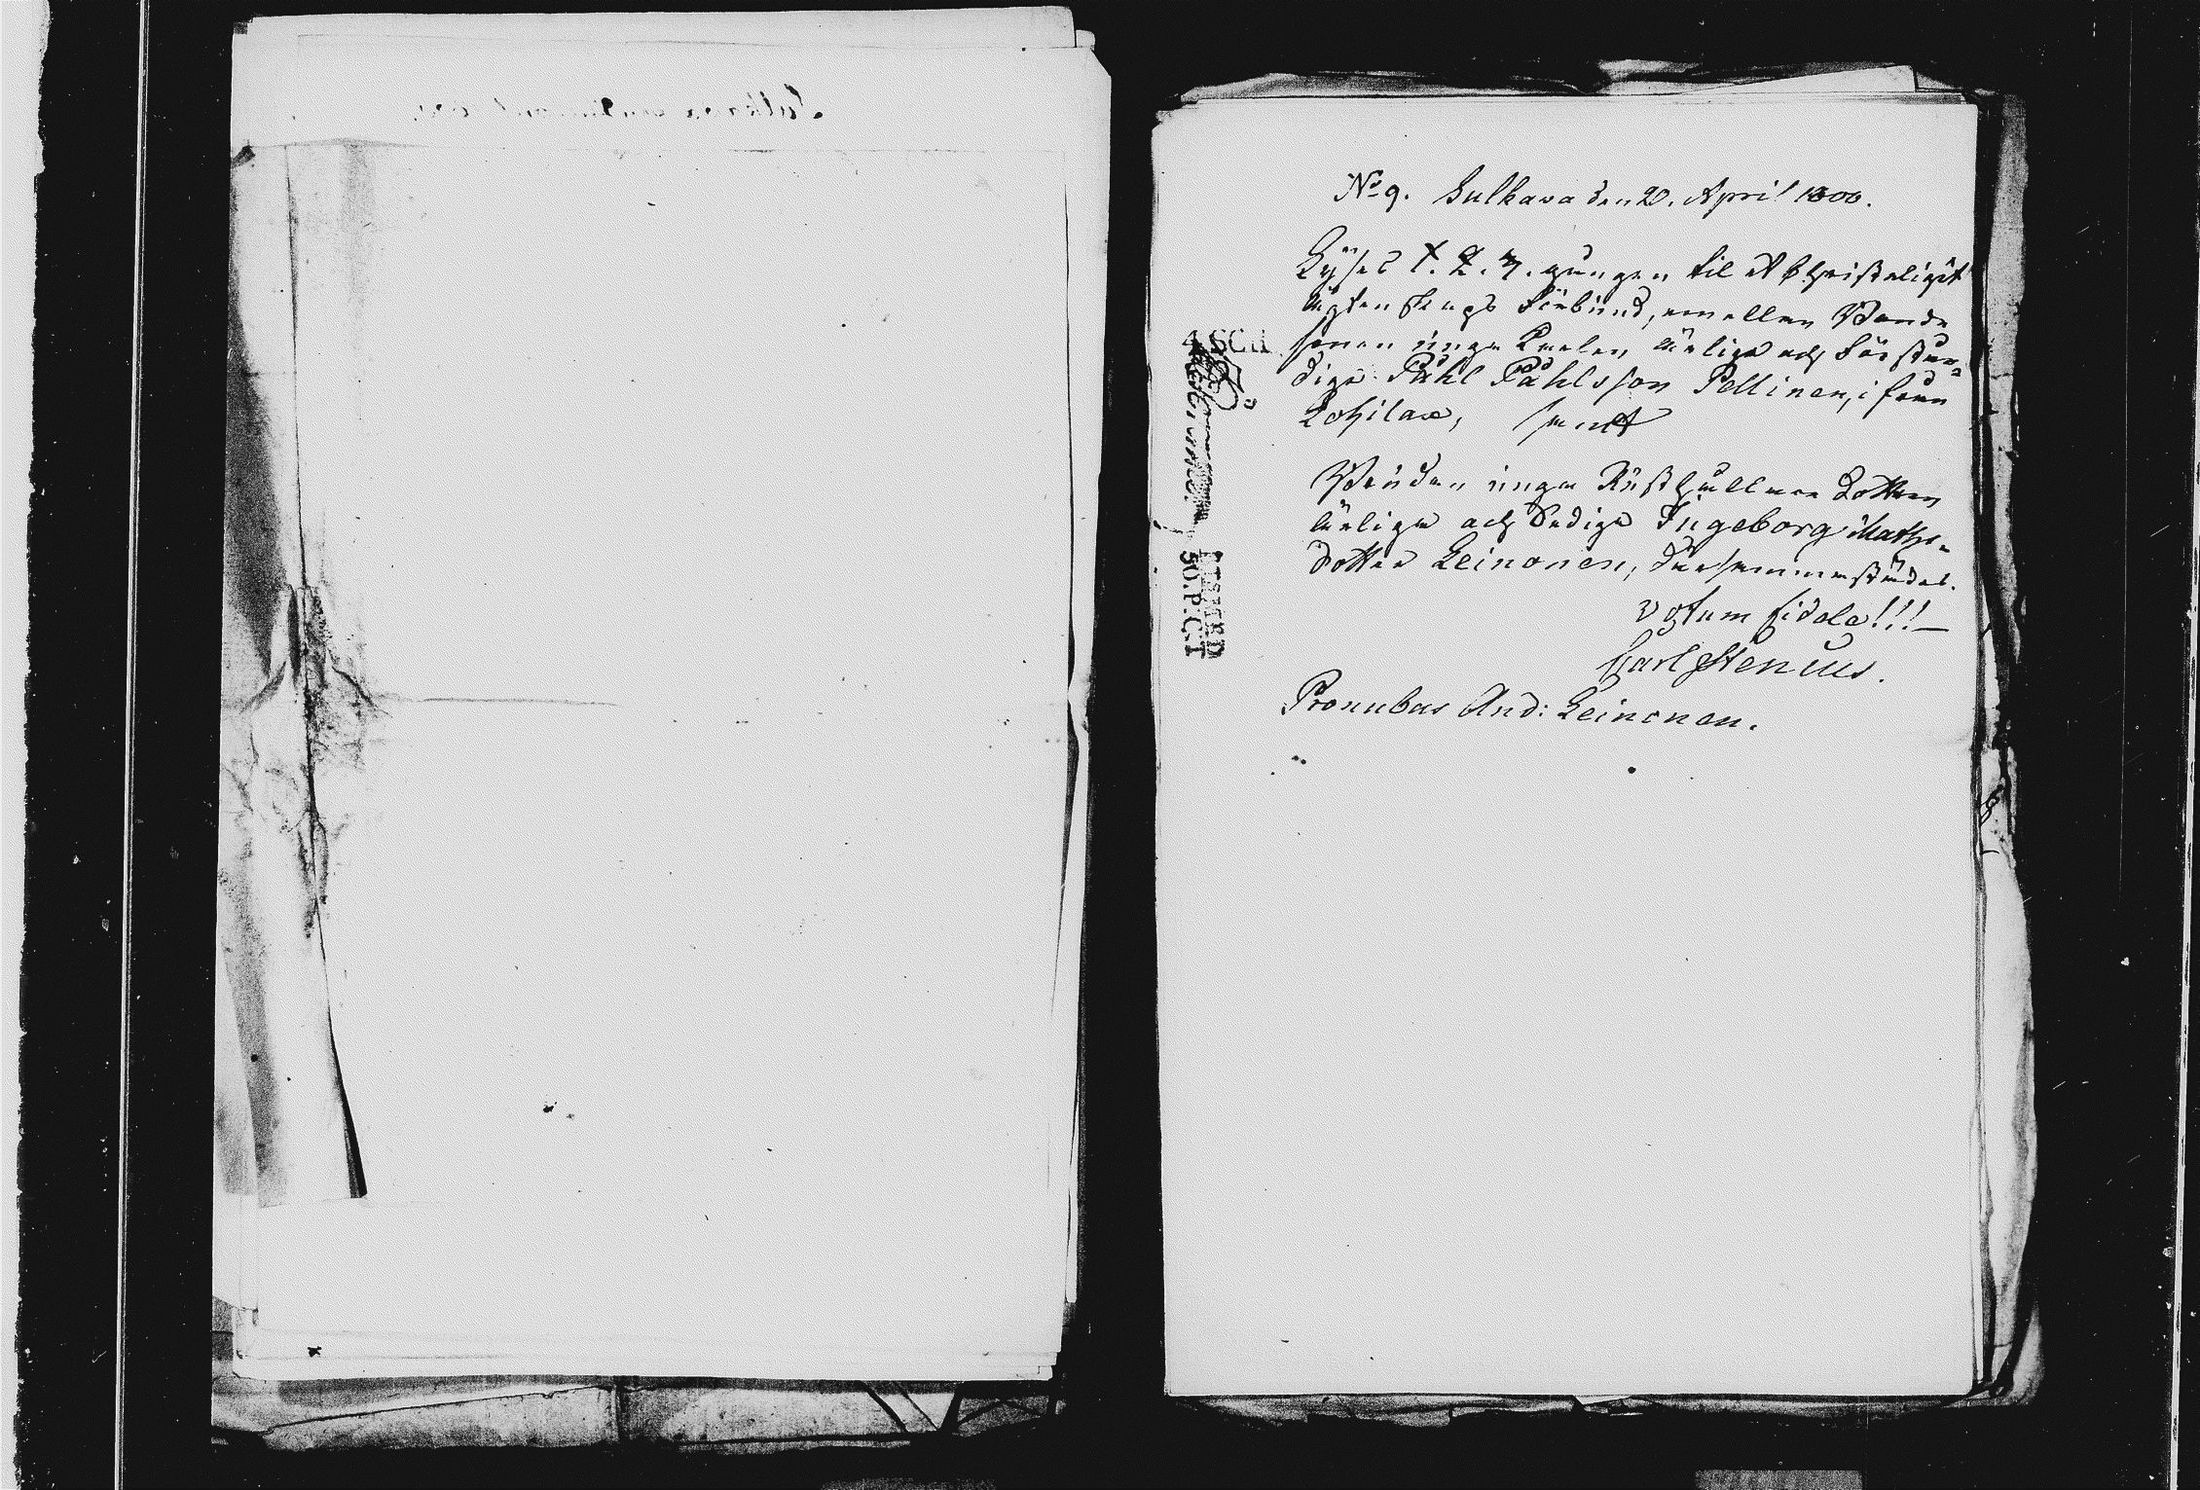 No 9. Sulkava den 20. April 1800.
Lyses 1. 2. 3. gången til et Christeligit
ägtenskaps förbund, emellan Bonde
sonen unga Karlen ärlige och förstån-
dige Påhl Påhlsson Pellinen, ifrån
Lohilax, samt
Bruden unga Rusthållare Dottren
ärliga och Sediga Ingeborg Maths-
dotter Leinonen, därsammastädes.
votum fidele!!!—
Carl Stenius.
Pronubus And: Leinonen.
4 SCH
50. P. C-T